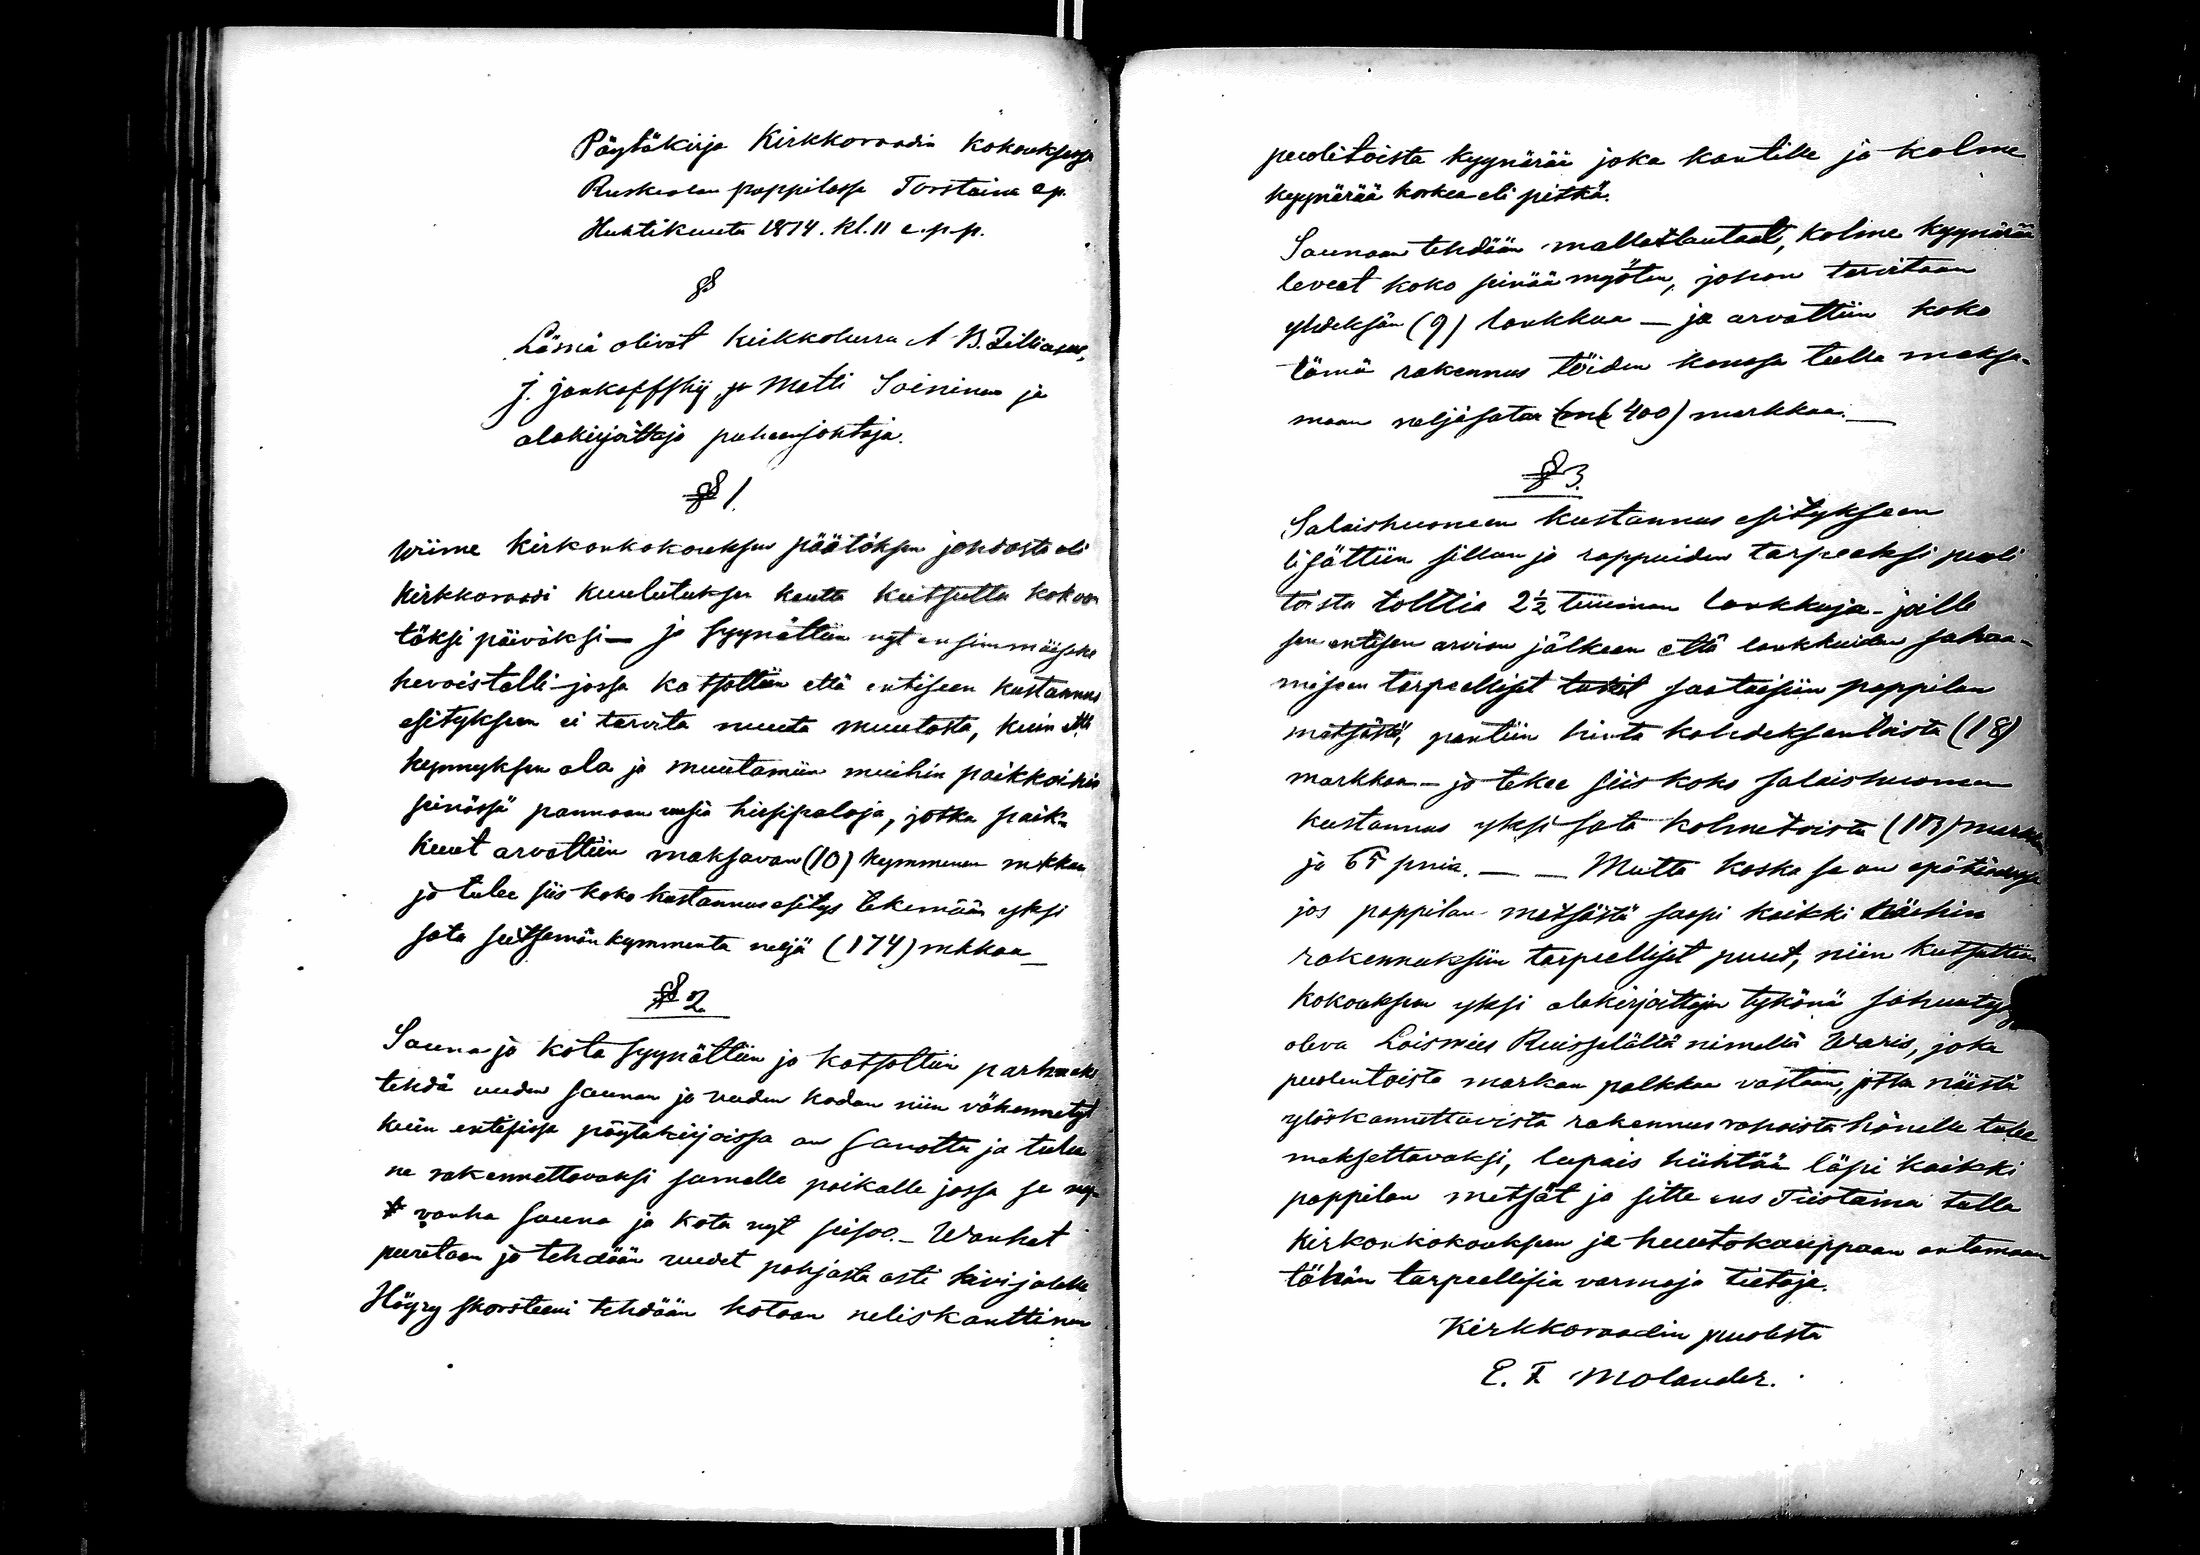 Pöytäkirja Kirkkoraadin kokouksessa
Ruskealan pappilassa Torstaina 2 p.
Huhtikuuta 1874. kl. 11 e.p.p.
§
Läsnä olivat kirkkoherra A B. Zilliacus,
J. Jankoffskij, ja Matti Soininen ja
alakirjoittaja puheenjohtaja.
§ 1.
Wiime kirkonkokouksen päätöksen johdosta oli
kirkkoraadi kuulutuksen kautta kutsuttu kokoon
täksi päiväksi — ja syynättiin nyt ensimmäiseksi
hevoistalli jossa katsottiin että entiseen kustannus
esitykseen ei tarvita muuta muutosta, kuin että
kynnyksen ala ja muutamiin muihin paikkoihin
seinässä pannaan uusia hirsipaloja, jotka paik-
kuut arvattiin maksavan (10) kymmenen mkkaa
ja tulee siis koko kustannusesitys tekemään yksi
sata seitsemän kymmentä neljä (174) mkkaa —
§ 2
Sauna ja kota syynättiin ja katsottiin parhaaksi
tehdä uuden saunan ja uuden kodan niin vähennetyt
kuin entisissä pöytäkirjoissa on sanottu ja tulee
ne rakennettavaksi samalle paikalle jossa se
vanha sauna ja kota nyt seisoo. — Wanhat
puretaan ja tehdään uudet pohjasta asti kivijalalle
Höyry skorsteeni tehdään kotaan neliskanttinen
puolitoista kyynärää joka kantille ja kolme
kyynärää korkea eli pitkä.
Saunaan tehdään mallaslautaat, kolme kyynärää
leveät koko seinää myöten, johon tarvitaan
yhdeksän (9) lankkua — ja arvattiin koko
tämä rakennus töiden kanssa tulla maksa-
maan neljäsataa (400) markkaa. —
§ 3.
Salaishuoneen kustannus esitykseen
lisättiin sillan ja rappuiden tarpeeksi puoli
toista tolttia 2½ tuuman lankkuja - joille
sen entisen arvion jälkeen että lankkuiden sahaa-
miseen tarpeelliset tukit saataisiin pappilan
metsästä, pantiin hinta kahdeksantoista (18)
markkaa — ja tekee siis koko salaishuoneen
kustannus yksi sata kolmetoista (113) markkaa
ja 65 pniä. — — Mutta koska se on epätietoista
jos pappilan metsästä saapi kaikki näihin
rakennuksiin tarpeelliset puut, niin kutsuttiin
kokouksen yksi alakirjoittajan tykönä
oleva Loismies Ruisselältä nimeltä Waris, joka
puolentoista markan palkkaa vastaan, jotka näistä
ylöskannettavista rakennus rahoista hänelle tulee
maksettavaksi, lupais hiihtää läpi kaikki
pappilan metsät ja sitte ens Tiistaina tulla
kirkonkokouksen ja huutokauppaan antamaan
tähän tarpeellisia varmoja tietoja.
Kirkkoraadin puolesta
E. F Molander.